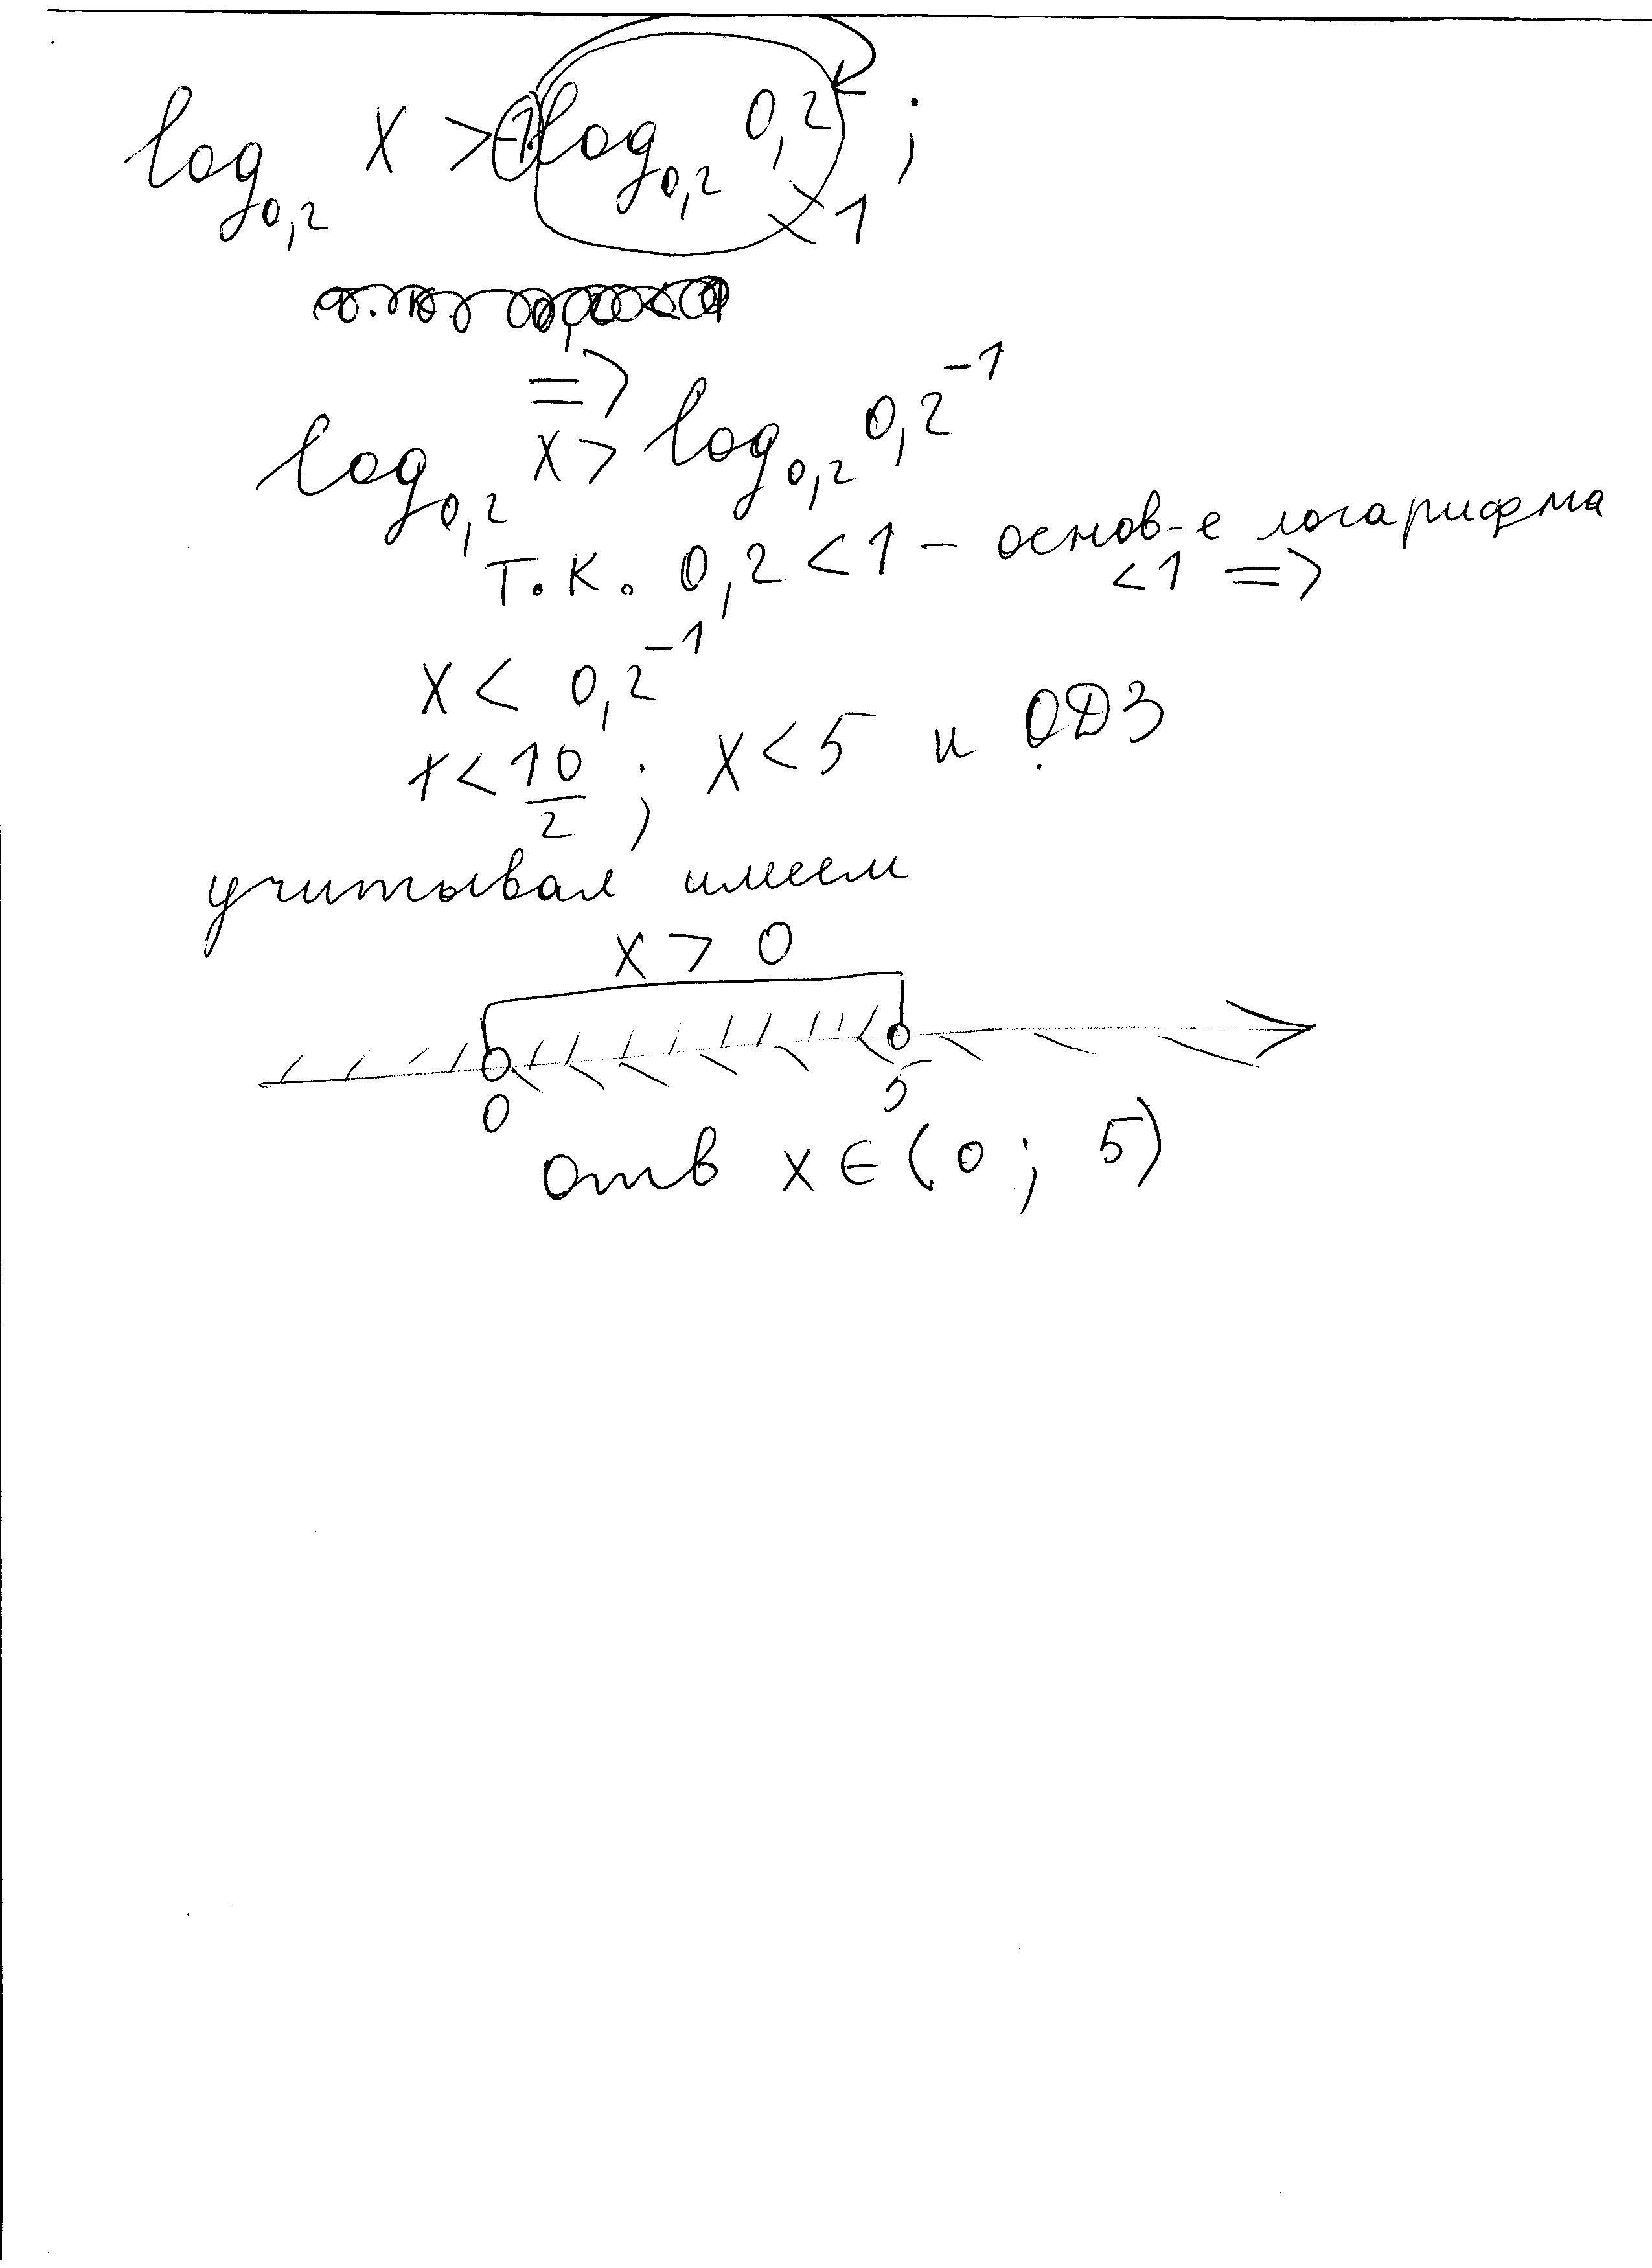 log₀,₂ x > -1·log₀,₂ 0,2 ;
1
=>
log₀,₂ x > log₀,₂ 0,2⁻¹
т.к. 0,2 < 1 – основ-е логарифма
< 1 =>
x < 0,2⁻¹
x < 10/2 ; x < 5 и ОДЗ
учитывая имеем
x > 0
0 5
отв x ∈ (0 ; 5)